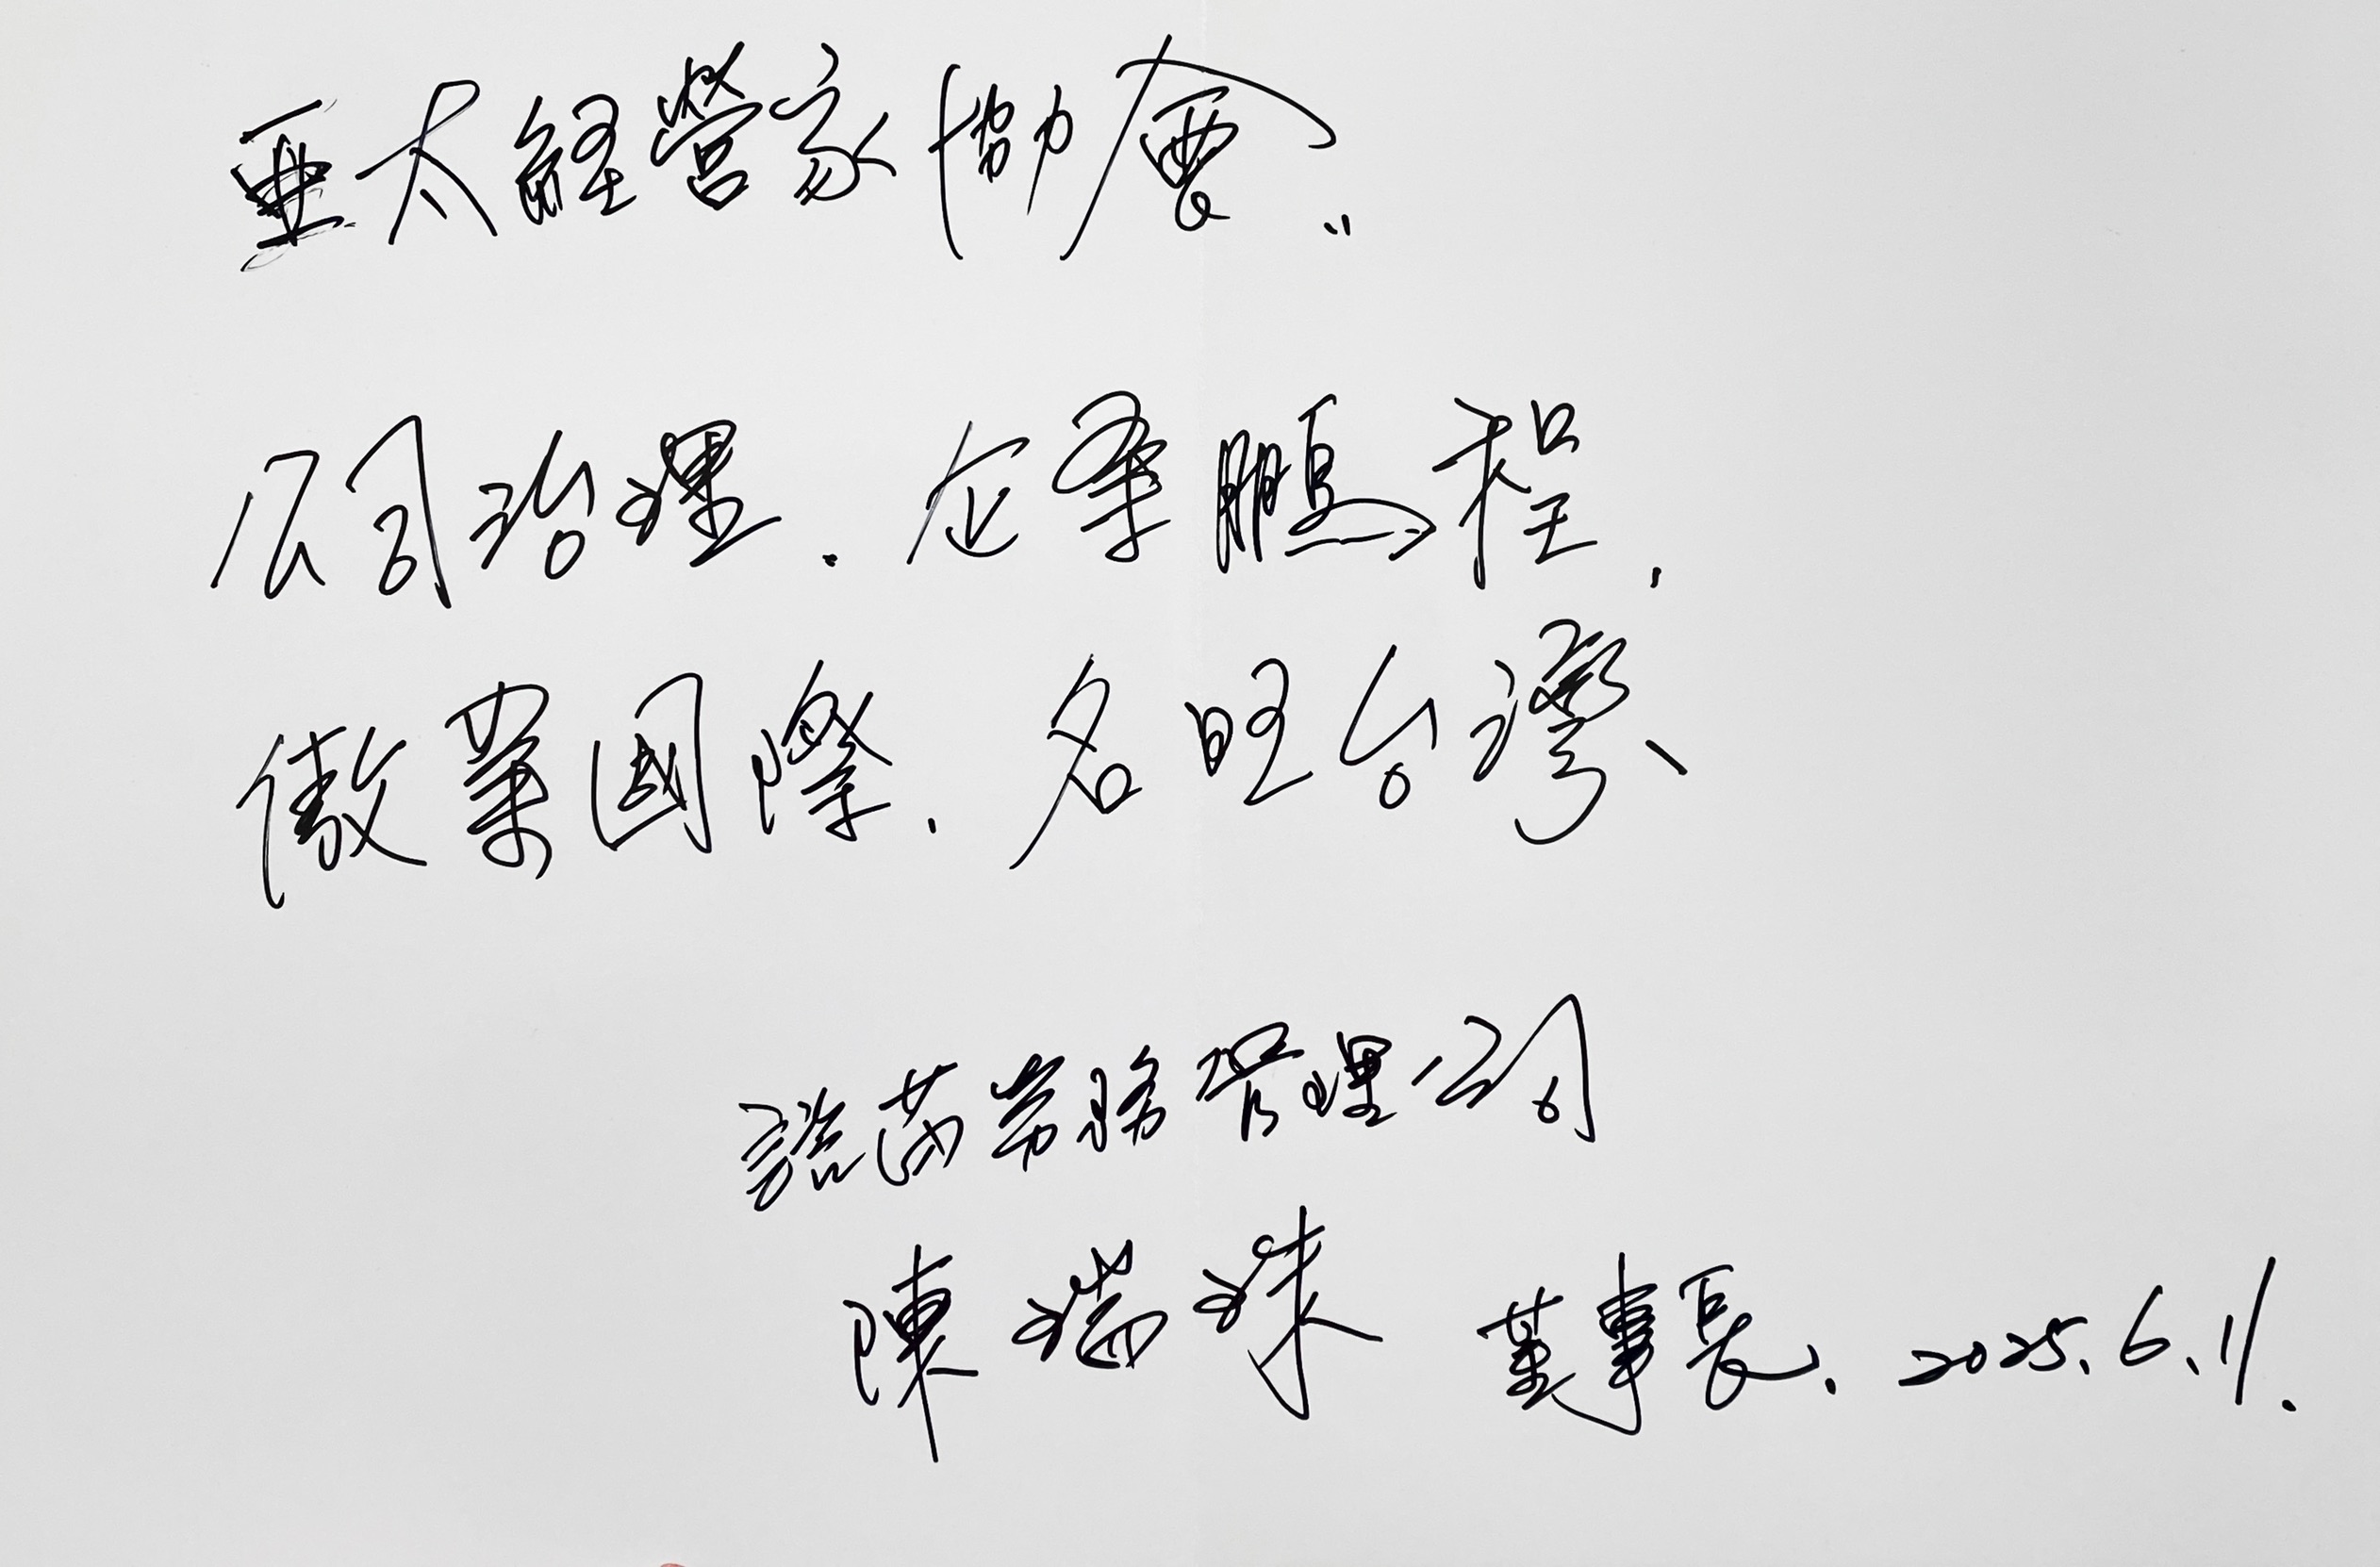 亞太經營家協會：
公司治理．企業鵬程．
傲業國際．名旺台灣、
誼莎勞務管理公司
陳瑞珠 董事長．2025.6.11.